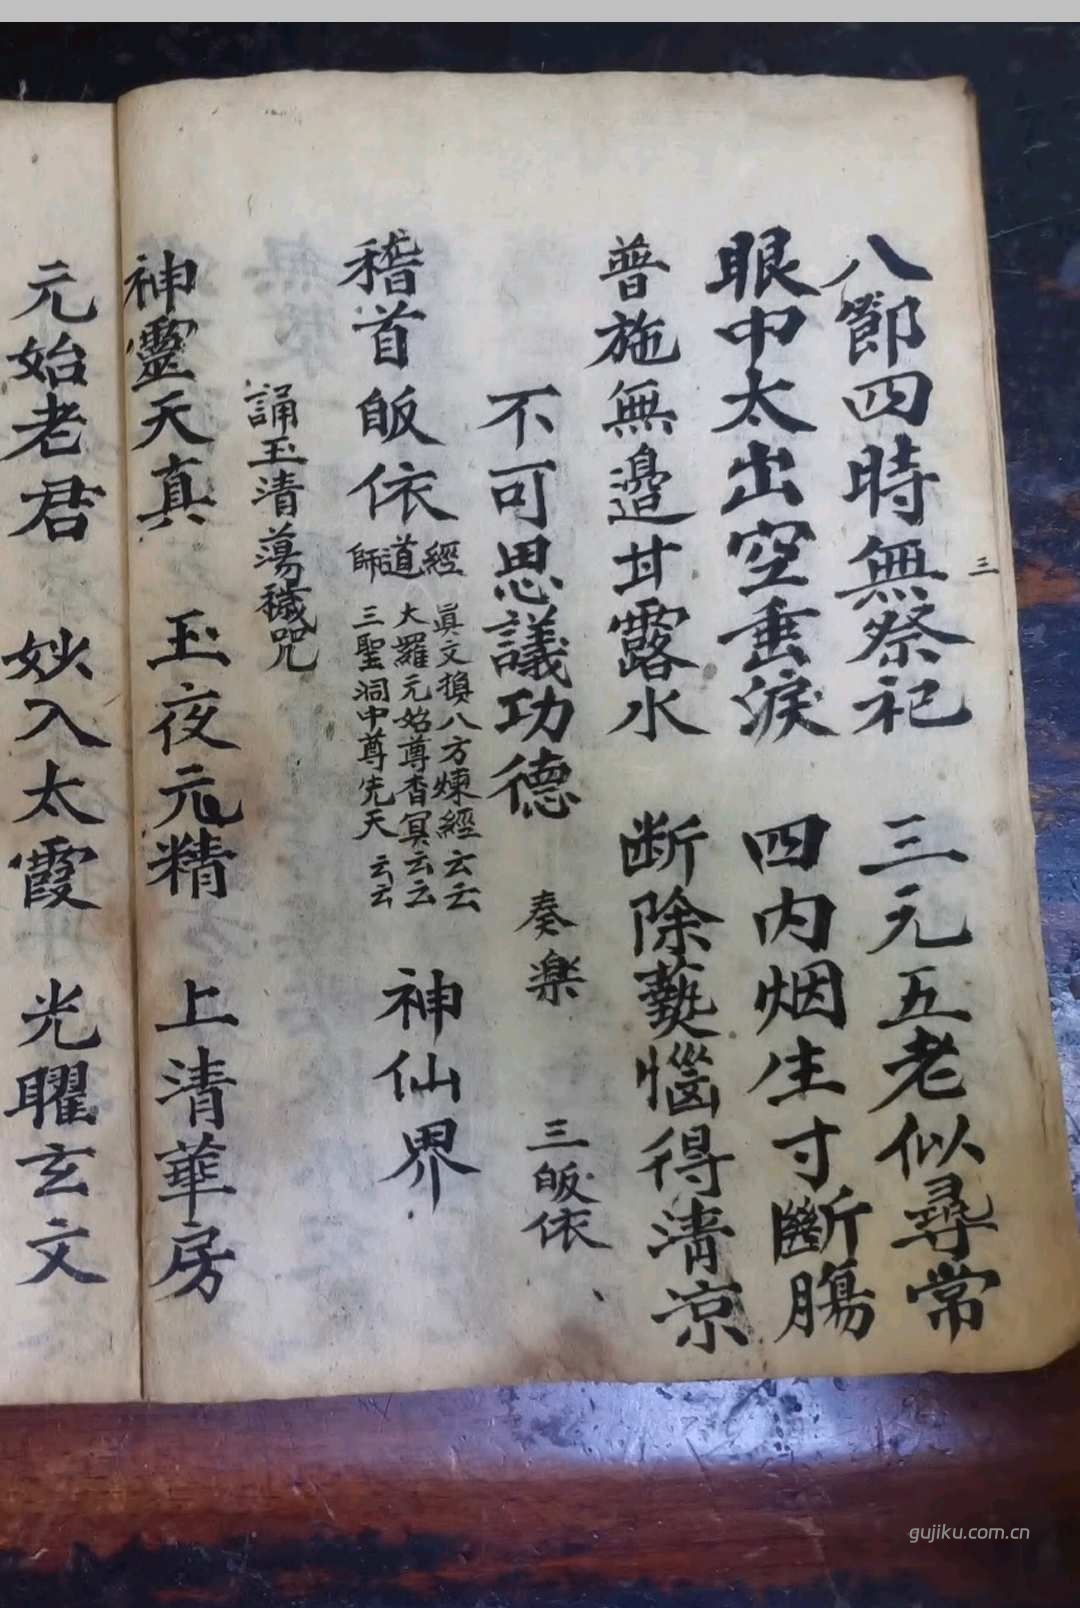 三
八節四時無祭祀 三元五老似尋常
眼中太出空垂淚 四内烟生寸斷腸
普施無邉甘露水 断除𤍠惱得清凉
不可思議功德 奏楽 三皈依
稽首皈依 經道師
眞文換八方煉經云云
大羅元始尊杳冥云云
三聖洞中尊先天云云
神仙界
誦玉清蕩穢咒
神靈天真 玉夜元精 上清華房
元始老君 妙入太霞 光曜玄文
gujiku.com.cn